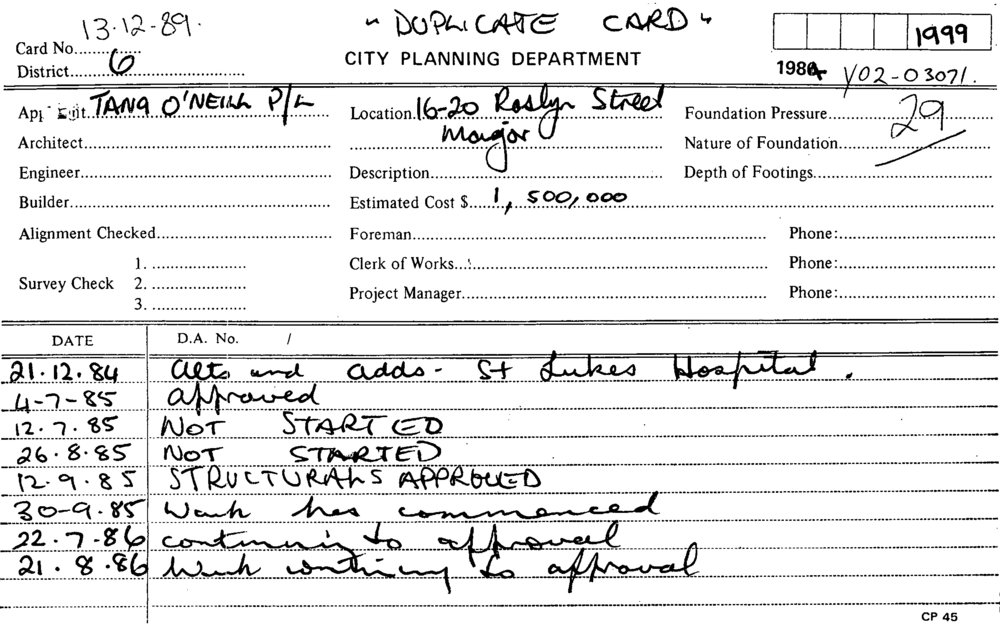 13·12·89· " DUPLICATE CARD "
Card No.
CITY PLANNING DEPARTMENT
1999
District 6
1984 Y02-03071.
TANG O'NEILL P/L
Location 16-20 Roslyn Street
Foundation Pressure
29
Architect
Major
Nature of Foundation
Engineer
Description
Depth of Footings
Builder
Estimated Cost $ 1, 500,000
Alignment Checked
Foreman
Phone:
Survey Check
1.
2.
3.
Clerk of Works
Phone:
Project Manager
Phone:
DATE D.A. No. /
21.12.84 Alts and adds - St Lukes Hospital.
4-7-85 approved
12.7.85 NOT STARTED
26.8.85 NOT STARTED
12.9.85 STRUCTURALS APPROVED
30-9.85 Work has commenced
22.7.86 continuing to approval
21.8.86 Work continuing to approval
CP 45